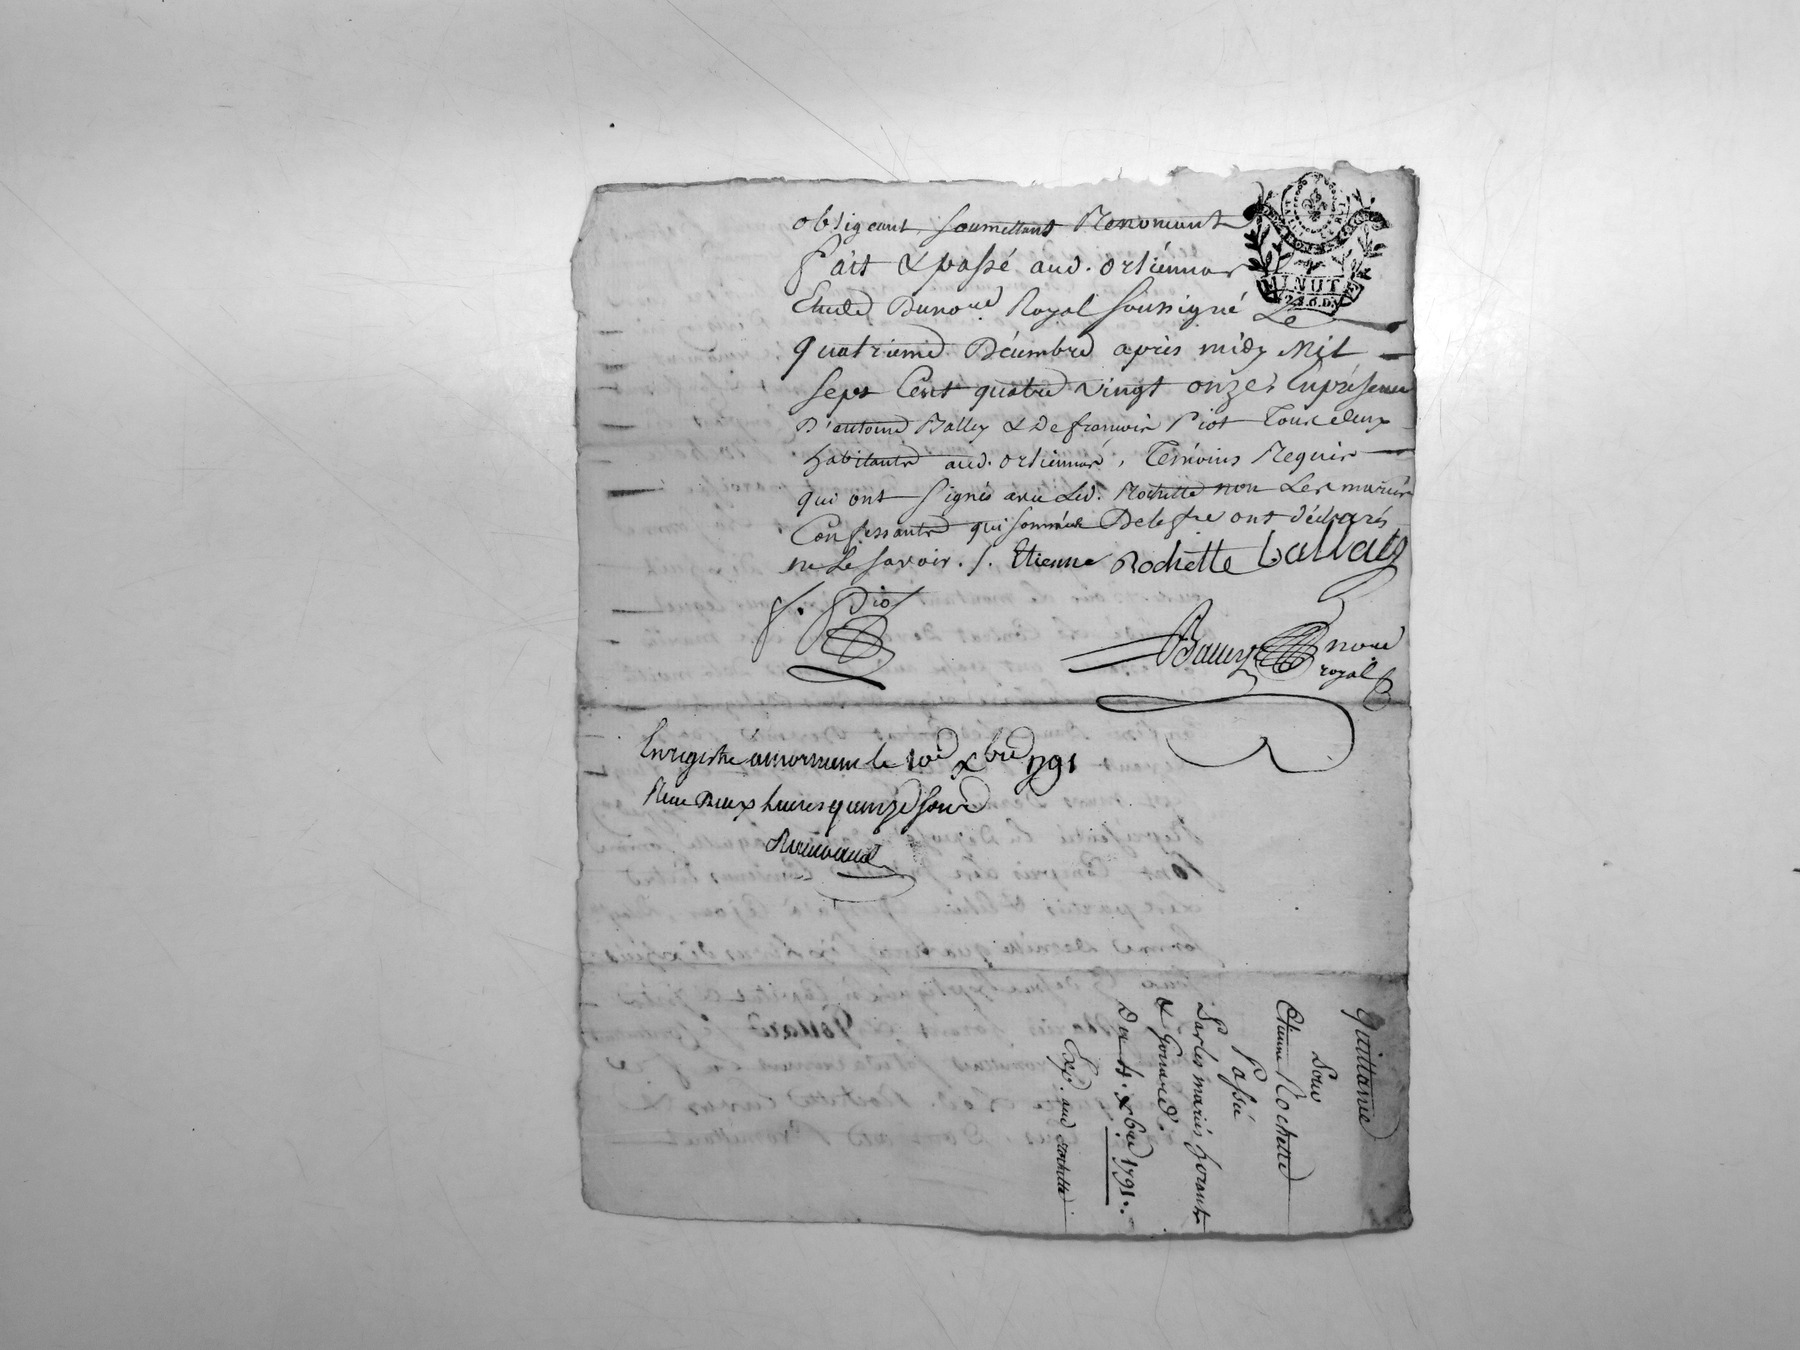 obligeant, soumettant Renonçant
fait & passé aud. ortiennas
Etude Dunore Royal soussigné Le
quatrieme Décembre après midy Mil
sept Cent quatre vingt onze, En présence
D'antoine Balley & De françois Piot Tous deux
habitants aud. ortiennas, Témoins Requis
qui ont signés avec led. Rochette non Les mariés
Confessants qui sommés De le fre ont déclarés
ne Le savoir. /. Etienne Rochette Ballay
f. Piot
nore
royal
Enregistré a mornem le 10e xbre 1791
Reçu Deux livres quinze sous
MINUTE
2 S. 6 D.
Quittance
Pour
Etienne Rochette
Passée
Par les mariés forant
& Gonard.
Du 4. xbre 1791.
Exp. aud Rochette